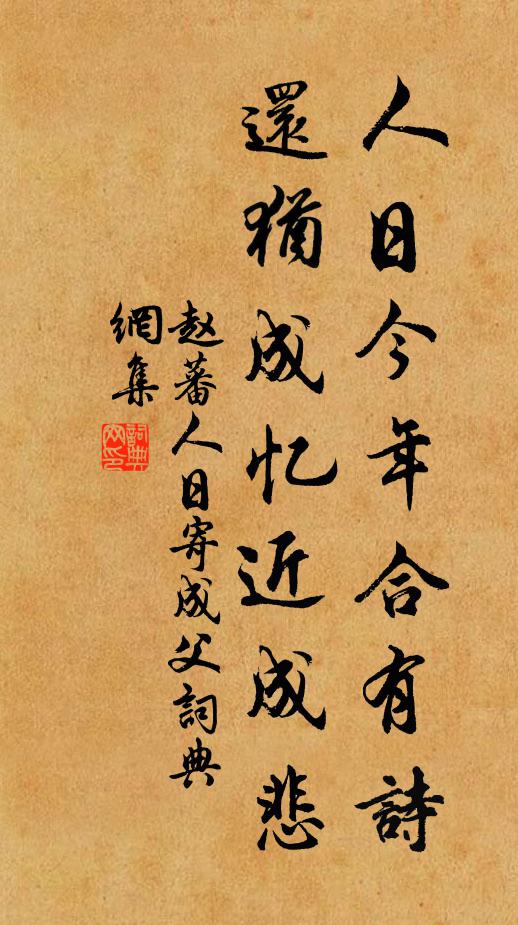 人日今年合有詩
還猶成忆近成悲
赵蕃人日寄成父詞典
網集
詞典
网印